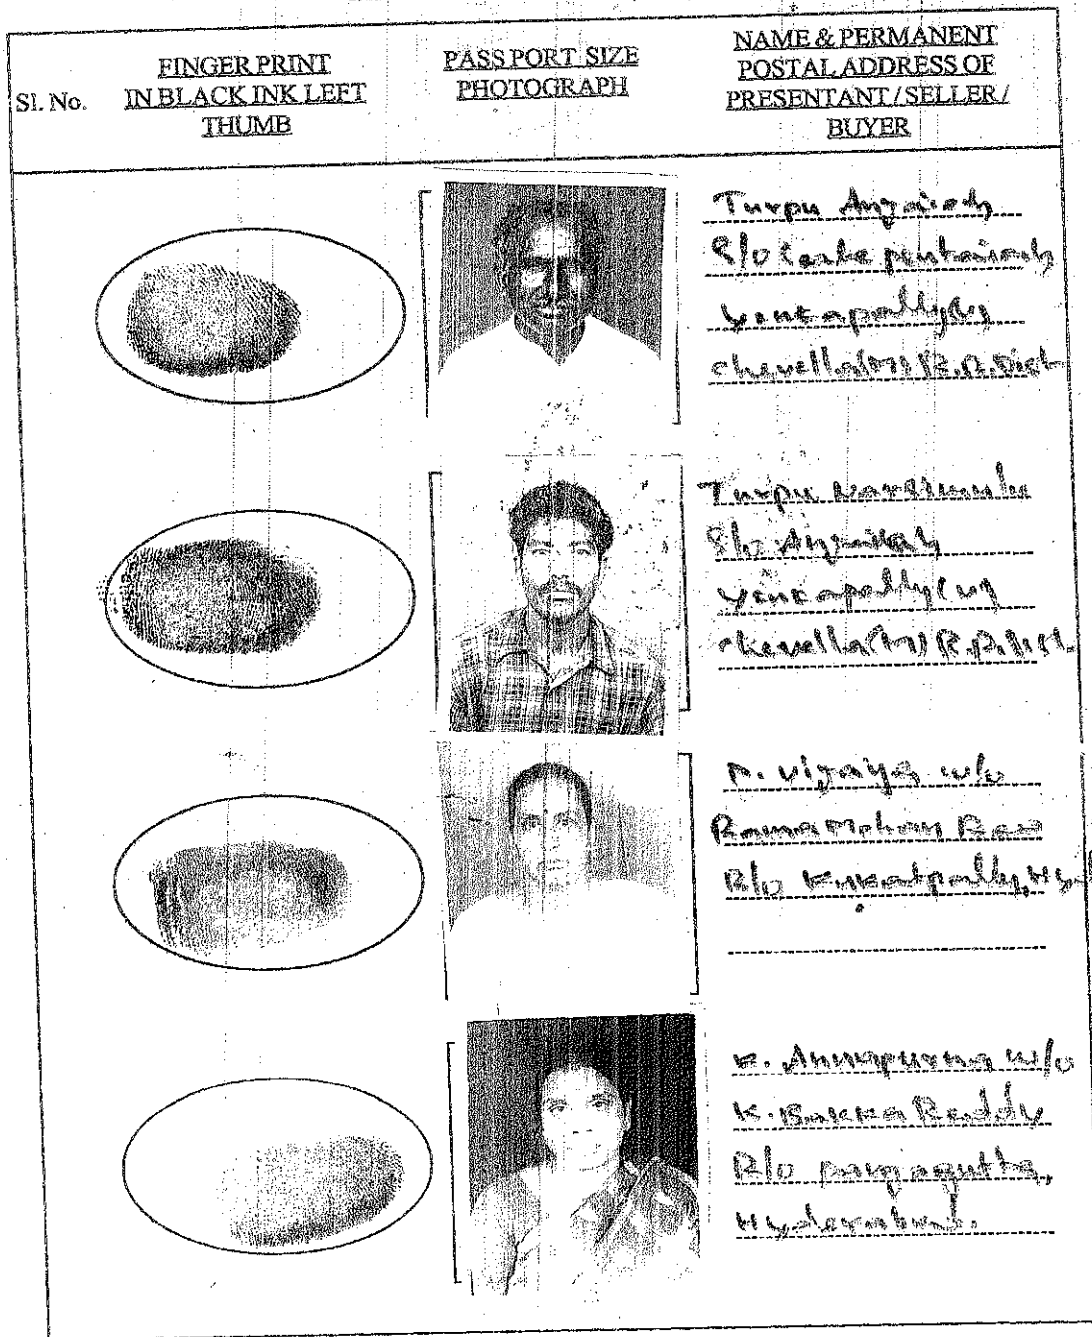 Sl. No.
FINGER PRINT
IN BLACK INK LEFT
THUMB
PASS PORT SIZE
PHOTOGRAPH
NAME & PERMANENT
POSTAL ADDRESS OF
PRESENTANT / SELLER /
BUYER
Turpu Anjaiah
S/o
chevella (M) R.R. Dist
Turpu Narsimulu
S/o Anjaiah
chevella (M) R.R. Dist
P. Vijaya w/o
Rama Mohan Rao
R/o Kukatpally, Hyd
K. Annapurna w/o
K. Bakka Reddy
R/o panjagutta,
Hyderabad.